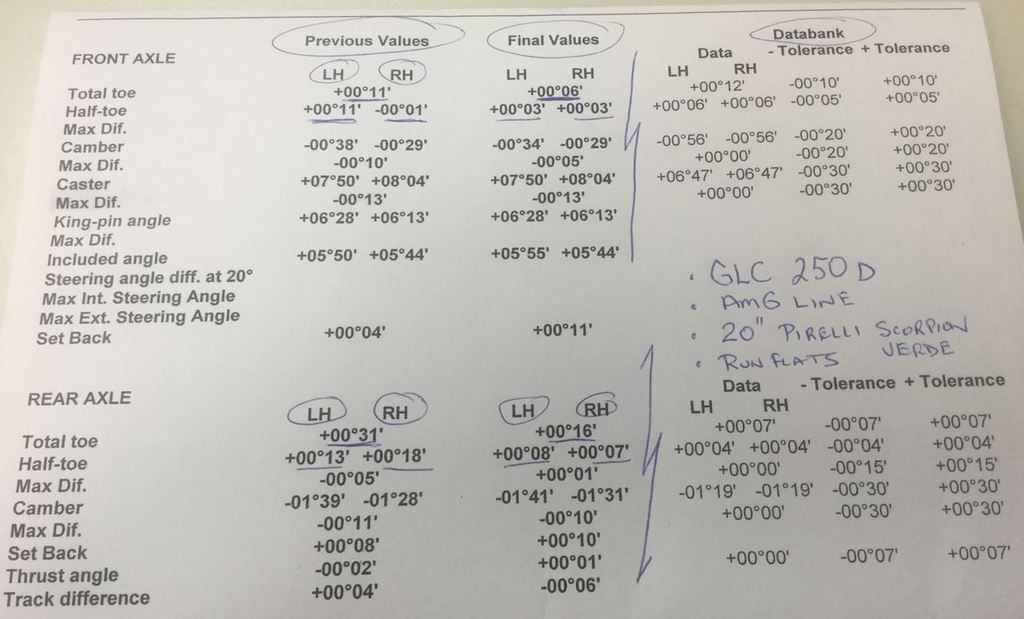 Previous Values Final Values Databank
FRONT AXLE Data - Tolerance + Tolerance
LH RH LH RH LH RH
Total toe +00°11' +00°06' +00°12' -00°10' +00°10'
Half-toe +00°11' -00°01' +00°03' +00°03' +00°06' +00°06' -00°05' +00°05'
Max Dif.
Camber -00°38' -00°29' -00°34' -00°29' -00°56' -00°56' -00°20' +00°20'
Max Dif. -00°10' -00°05' +00°00' -00°20' +00°20'
Caster +07°50' +08°04' +07°50' +08°04' +06°47' +06°47' -00°30' +00°30'
Max Dif. -00°13' -00°13' +00°00' -00°30' +00°30'
King-pin angle +06°28' +06°13' +06°28' +06°13'
Max Dif.
Included angle +05°50' +05°44' +05°55' +05°44'
Steering angle diff. at 20°
Max Int. Steering Angle
Max Ext. Steering Angle
Set Back +00°04' +00°11'
• GLC 250D
• AMG LINE
• 20" PIRELLI SCORPION VERDE
• RUN FLATS
REAR AXLE Data - Tolerance + Tolerance
LH RH LH RH LH RH
Total toe +00°31' +00°16' +00°07' -00°07' +00°07'
Half-toe +00°13' +00°18' +00°08' +00°07' +00°04' +00°04' -00°04' +00°04'
Max Dif. -00°05' +00°01' +00°00' -00°15' +00°15'
Camber -01°39' -01°28' -01°41' -01°31' -01°19' -01°19' -00°30' +00°30'
Max Dif. -00°11' -00°10' +00°00' -00°30' +00°30'
Set Back +00°08' +00°10'
Thrust angle -00°02' +00°01' +00°00' -00°07' +00°07'
Track difference +00°04' -00°06'